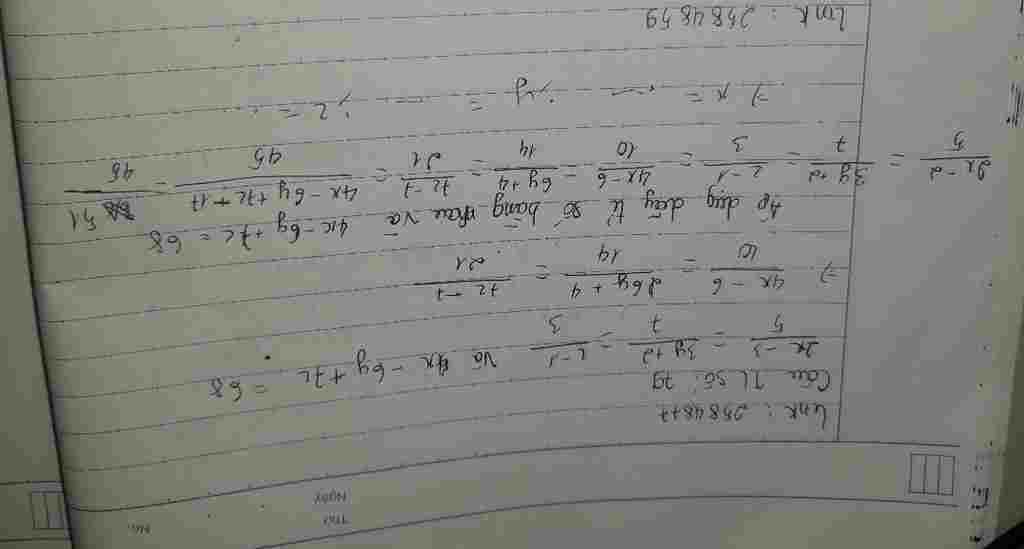 Thứ
Ngày
No.
link : 2584877
Câu TL số : 79
\frac{2x-3}{5} = \frac{3y+2}{7} = \frac{z-1}{3} và 4x - 6y + 7z = 68
=> \frac{4x-6}{10} = \frac{6y+4}{14} = \frac{7z-7}{21}
Áp dụng dãy tỉ số bằng nhau và 4x - 6y + 7z = 68
\frac{2x-2}{5} = \frac{3y+2}{7} = \frac{z-1}{3} = \frac{4x-6}{10} = \frac{6y+4}{14} = \frac{7z-7}{21} = \frac{4x-6y+7z+17}{45} = \frac{51}{45}
=> x = ... ; y = ... ; z = .
link : 2584859